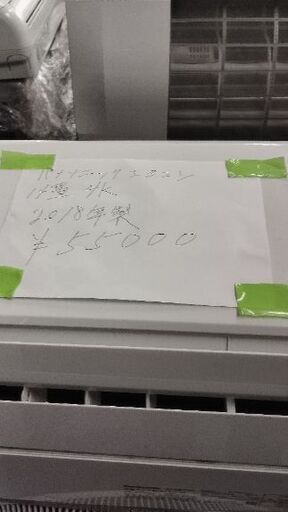 パナソニックエアコン
14畳 4K
2018年製
¥55000